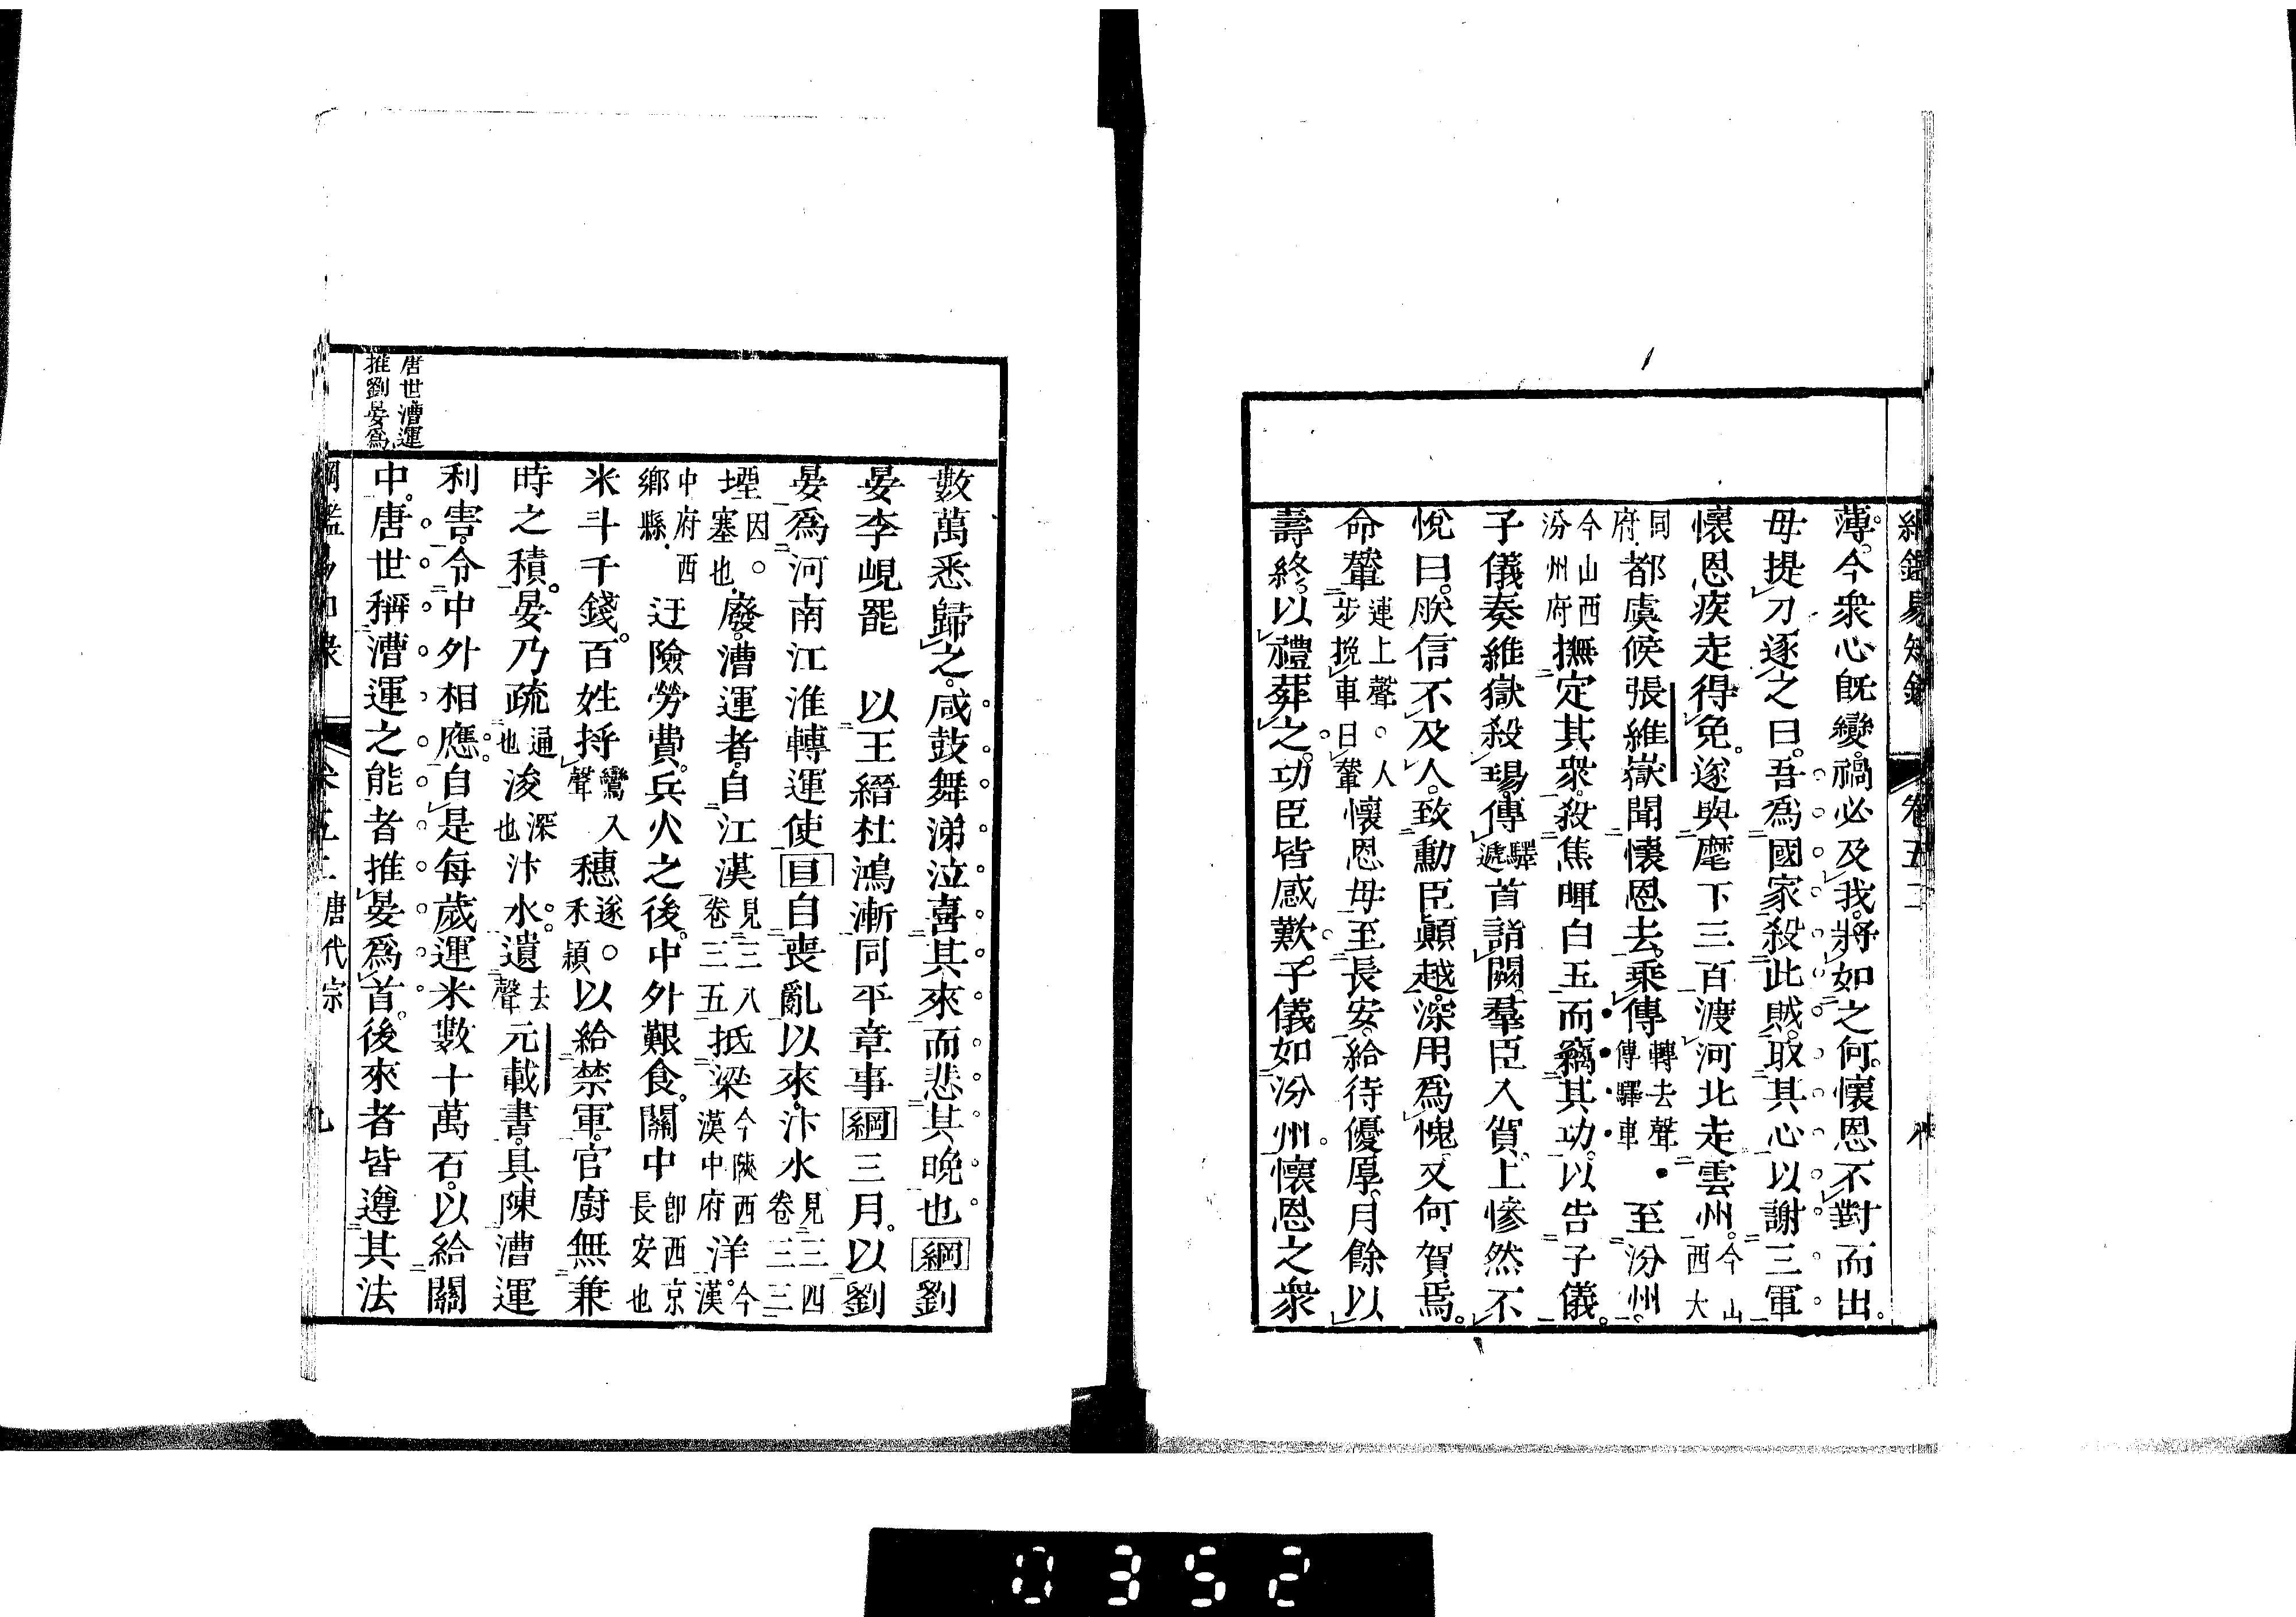 綱鑑易知錄 卷五二 八
薄今衆心旣變禍必及我將如之何懷恩不對而出
母提刀逐之曰吾爲國家殺此賊取其心以謝三軍
懷恩疾走得免遂與麾下三百渡河北走雲州今山西大
同府都虞候張維嶽聞懷恩去乘傳轉去聲傳驛車至汾州
今山西汾州府撫定其衆殺焦暉白玉而竊其功以告子儀
子儀奏維嶽殺瑒傳驛遞首詣闕羣臣入賀上慘然不
悅曰朕信不及人致勳臣顚越深用爲愧又何賀焉
命輦連上聲人步挽車曰輦懷恩母至長安給待優厚月餘以
壽終以禮葬之功臣皆感歎子儀如汾州懷恩之衆
數萬悉歸之咸鼓舞涕泣喜其來而悲其晚也綱劉
晏李峴罷 以王縉杜鴻漸同平章事綱三月以劉
晏爲河南江淮轉運使目自喪亂以來汴水見三四卷三三
堙因塞也廢漕運者自江漢見三八卷三五抵梁今陝西漢中府洋今漢
中府西鄉縣迂險勞費兵火之後中外艱食關中卽西京長安也
米斗千錢百姓捋鸞入聲穗遂禾穎以給禁軍官廚無兼
時之積晏乃疏通也浚深也汴水遺去聲元載書具陳漕運
利害令中外相應自是每歲運米數十萬石以給關
中唐世稱漕運之能者推晏爲首後來者皆遵其法
唐世漕運
推劉晏爲
綱鑑易知錄 卷五二 唐代宗 九
0352